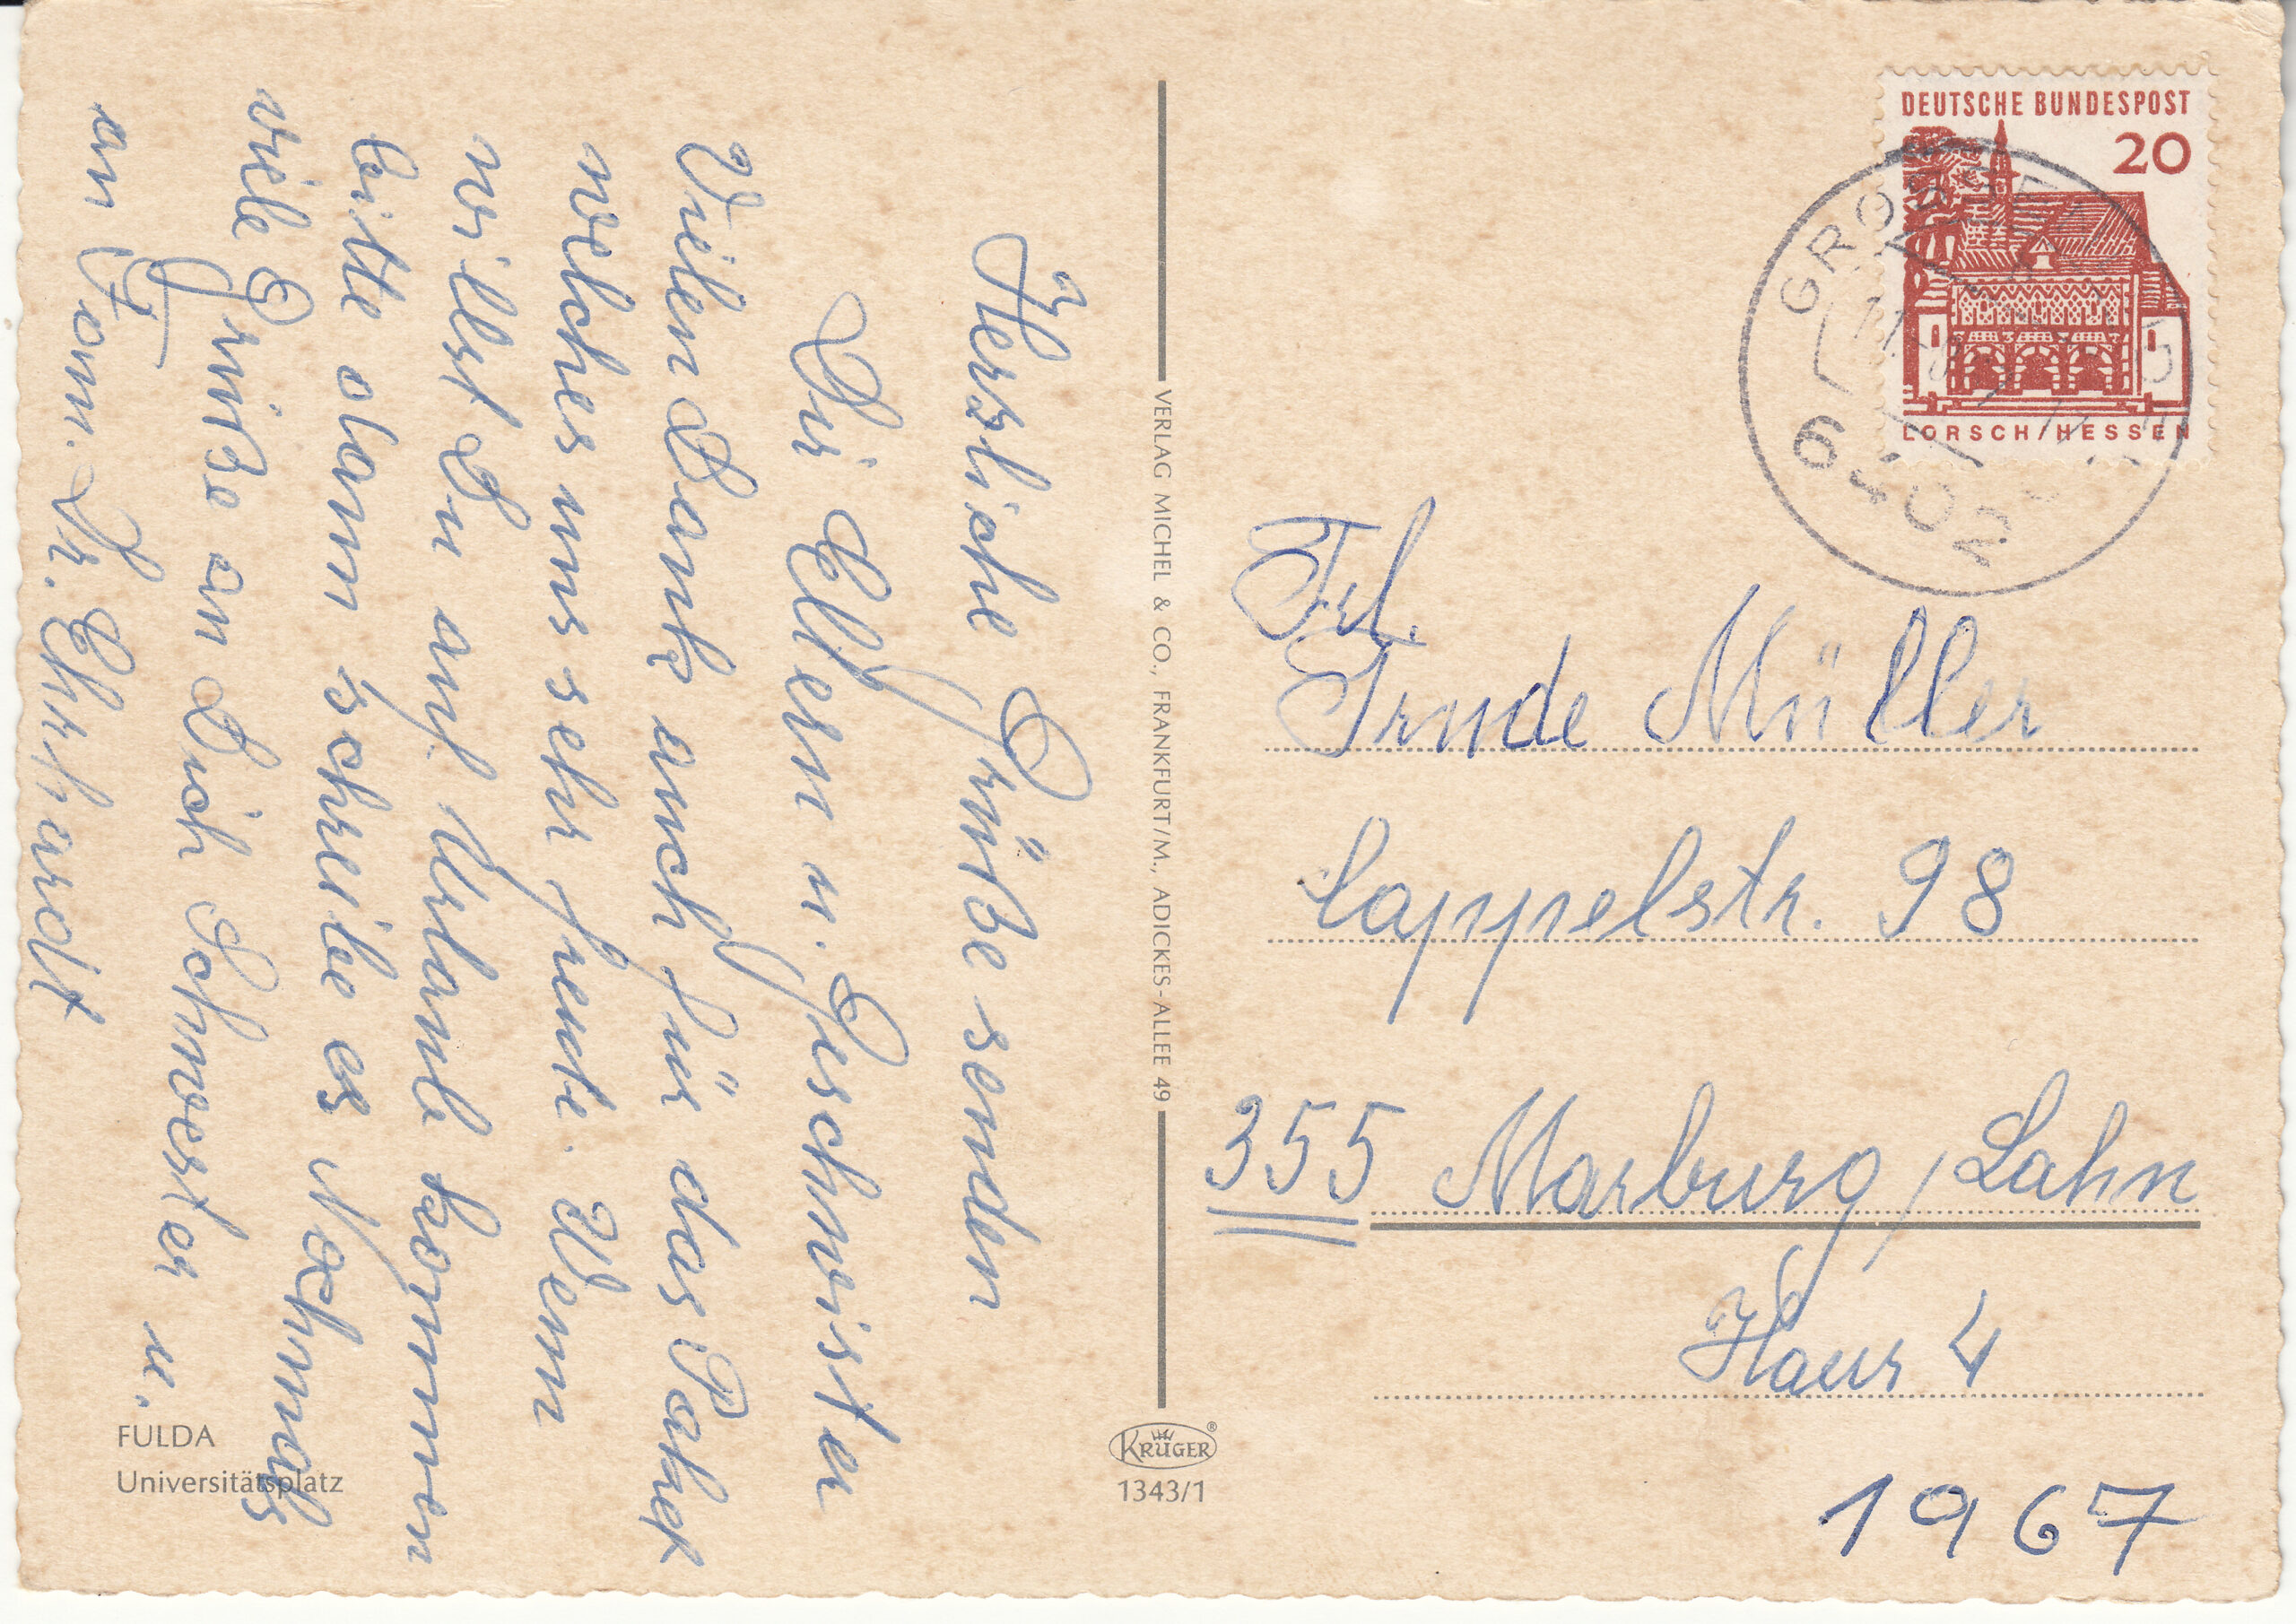 Herzliche Grüße senden
Dir Eltern u. Geschwister
Vielen Dank auch für das Paket
welches uns sehr freute. Wenn
willst Du auf Urlaub kommen
bitte dann schreibe es Nochmals
viele Grüße an Dich Schwester u.
an Fam. Dr. Ehrhardt
FULDA
Universitätsplatz
VERLAG MICHEL & CO., FRANKFURT/M., ADICKES-ALLEE 49
KRÜGER®
1343/1
DEUTSCHE BUNDESPOST
20
LORSCH/HESSEN
Frl.
Trude Müller
Cappelstr. 98
355 Marburg/Lahn
Haus 4
1967